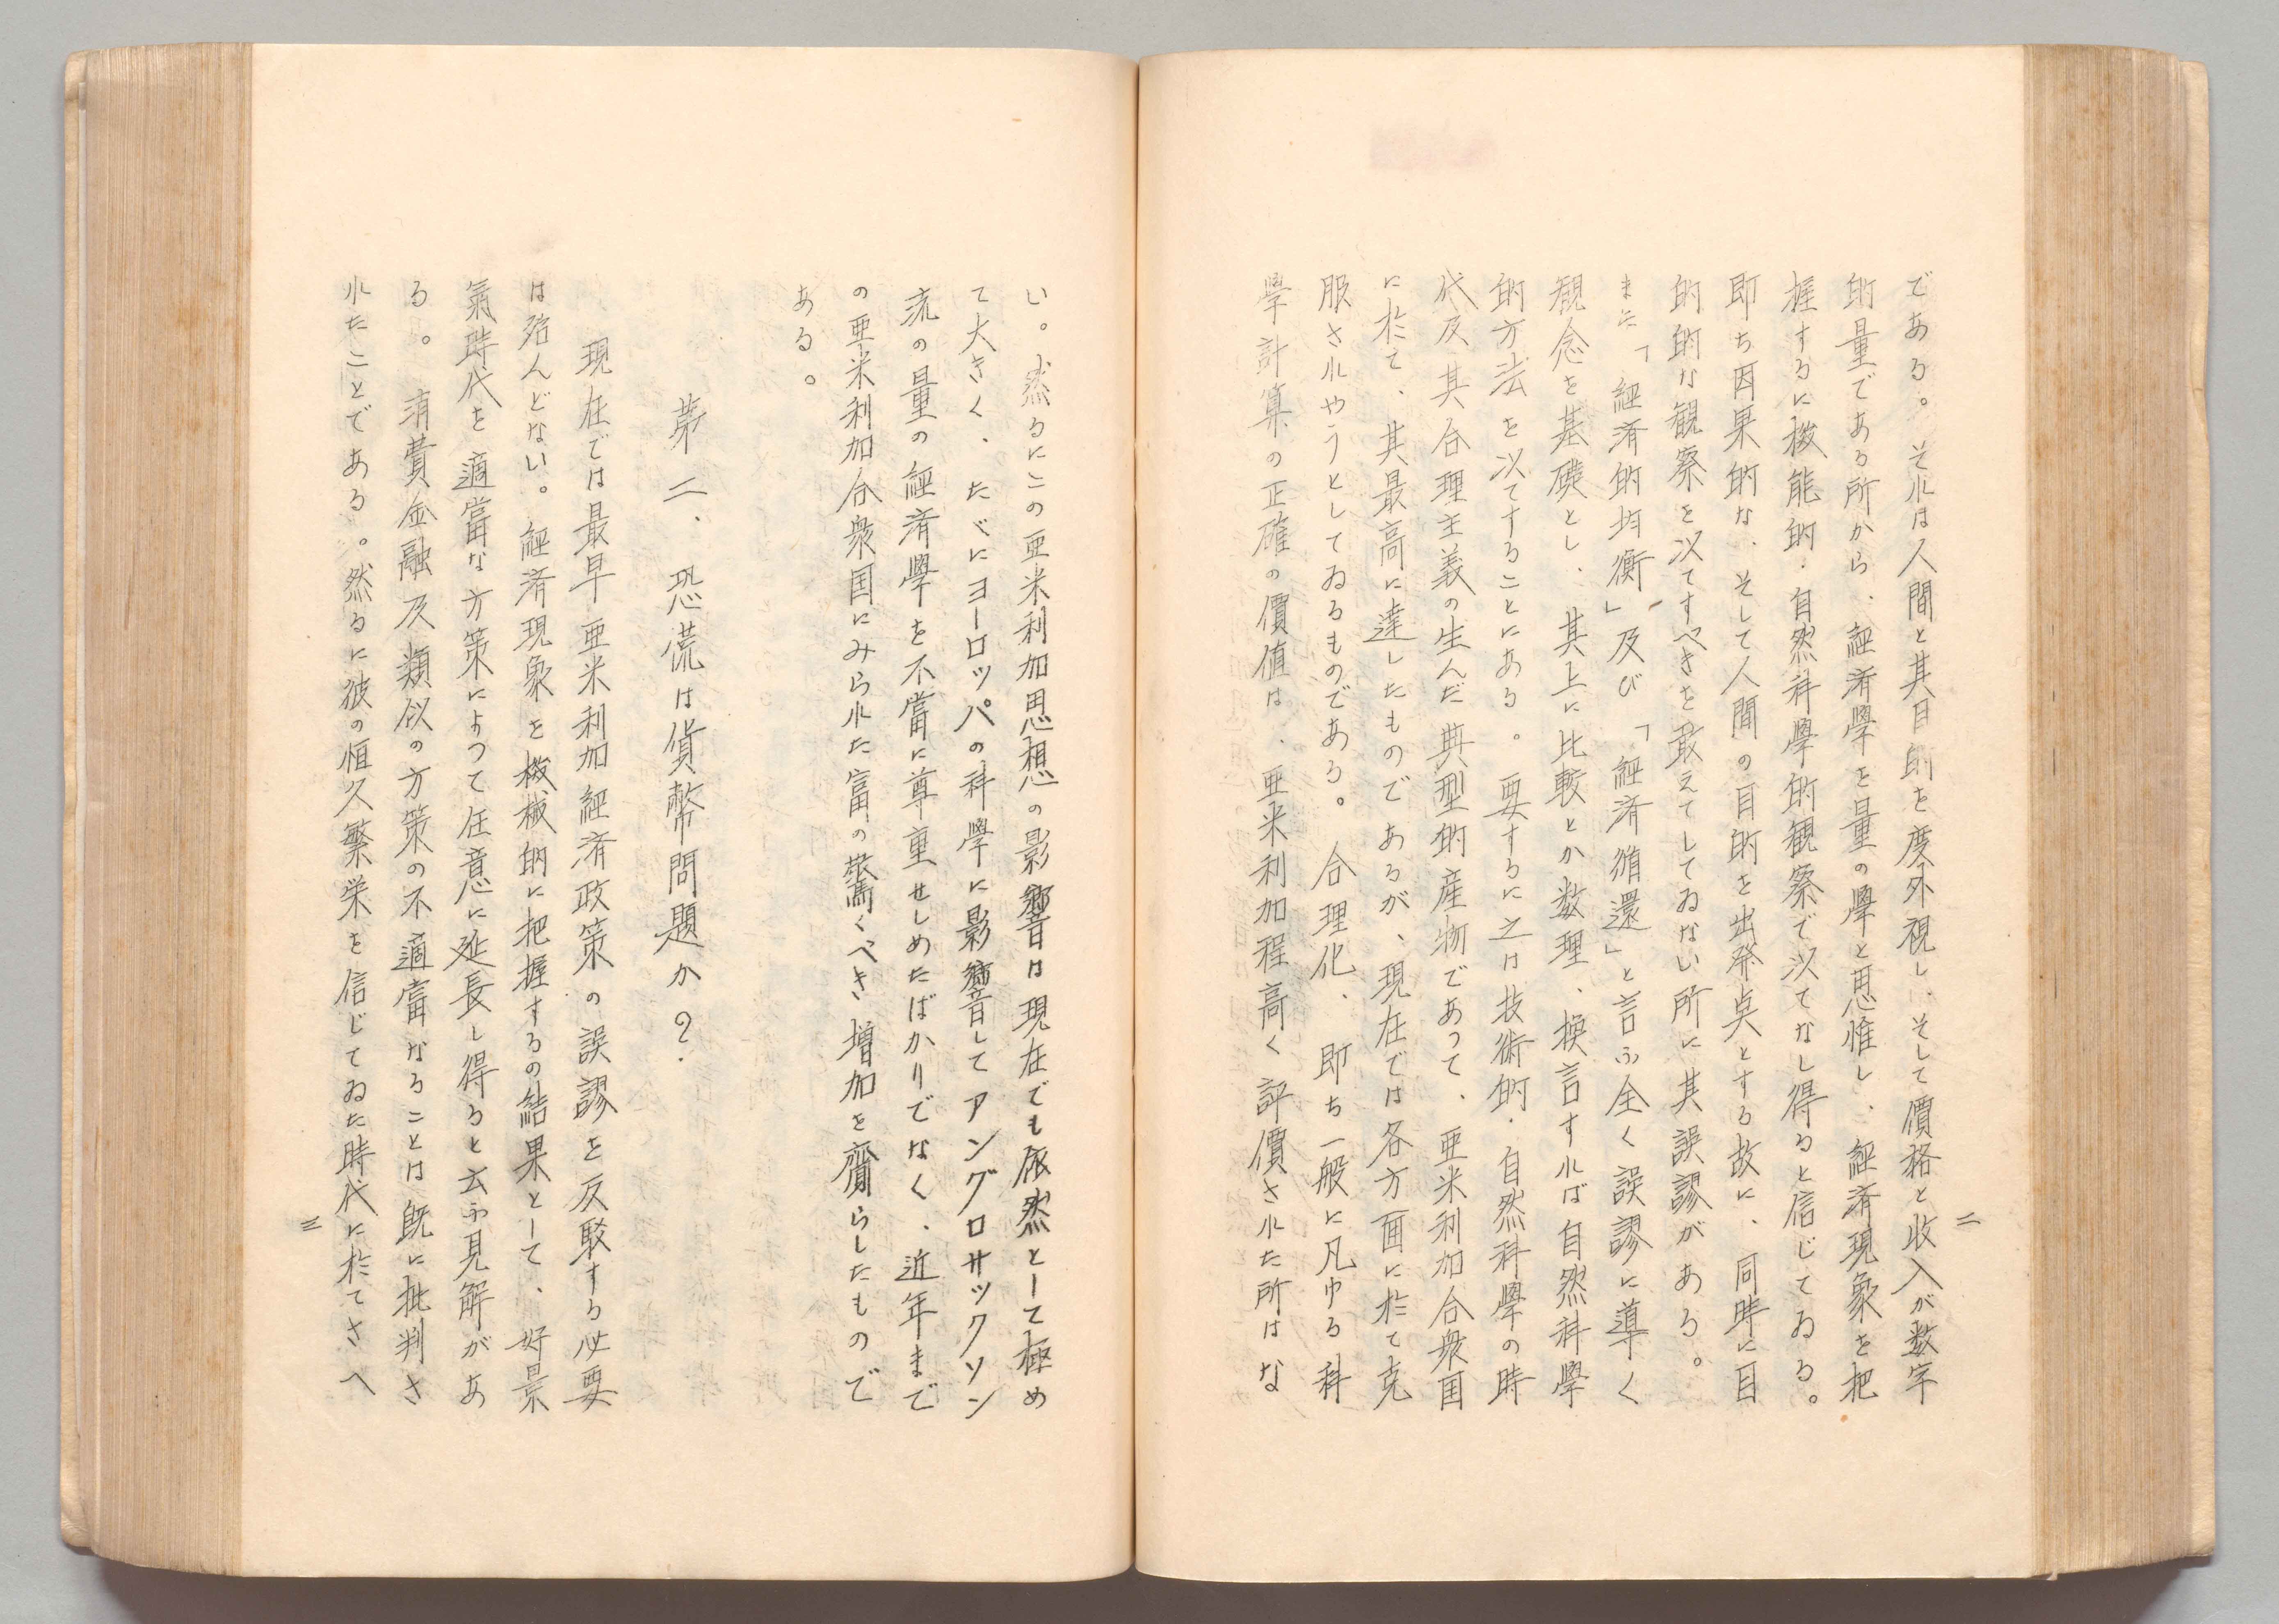 二
である。それは人間と其目的を度外視し、そして價格と收入が数字
的量である所から、経済學を量の學と思惟し、経済現象を把
握するに機能的、自然科學的観察で以てなし得ると信じてゐる。
即ち因果的な、そして人間の目的を出発点とする故に、同時に目
的的な観察を以てすべきを敢えてしてゐない所に其誤謬がある。
また「経済的均衡」及び「経済循還」と言ふ全く誤謬に導く
観念を基礎とし、其上に比較とか数理、換言すれば自然科學
的方法を以てすることにある。要するに之は技術的、自然科學の時
代及其合理主義の生んだ典型的産物であつて、亜米利加合衆国
に於て、其最高に達したものであるが、現在では各方面に於て克
服されやうとしてゐるものである。合理化、即ち一般に凡ゆる科
學計算の正確の價値は、亜米利加程高く評價された所はな
い。然るにこの亜米利加思想の影響は現在でも依然として極め
て大きく、たゞにヨーロッパの科學に影響してアングロサックソン
流の量の経済學を不當に尊重せしめたばかりでなく、近年まで
の亜米利加合衆国にみられた富の驚くべき増加を齎らしたもので
ある。
第二、恐慌は貨幣問題か？
現在では最早亜米利加経済政策の誤謬を反駁する必要
は殆んどない。経済現象を機械的に把握するの結果として、好景
氣時代を適當な方策によつて任意に延長し得ると云ふ見解があ
る。消費金融及類似の方策の不適當なることは既に批判さ
れたことである。然るに彼の恒久繁栄を信じてゐた時代に於てさへ
三